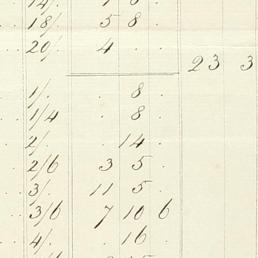 18/. 5 8 .
20/. 4 . .
23 3
1/. . 8 .
1/4 . 8 .
2/. . 14 .
2/6 3 5 .
3/. 11 5 .
3/6 7 10 6
4/. . 16 .